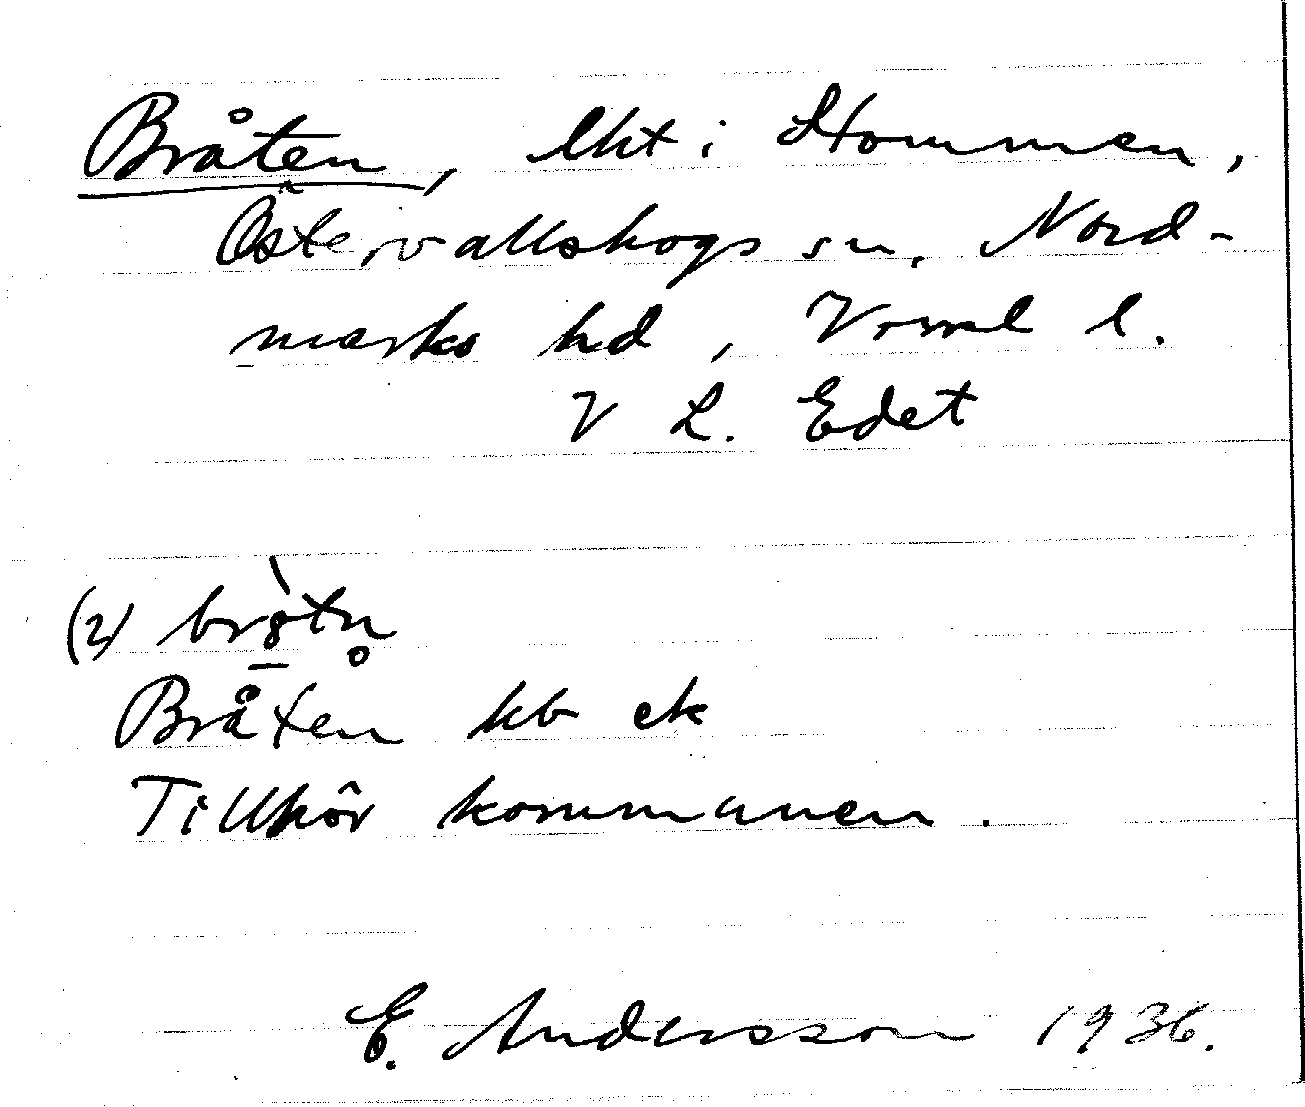 Bråten, lht i Stommen,
Östervallskogs sn, Nord-
marks hd, Vrml l.
V L. Edet
(2)
Bråten kb ek
Tillhör kommunen.
E. Andersson 1936.